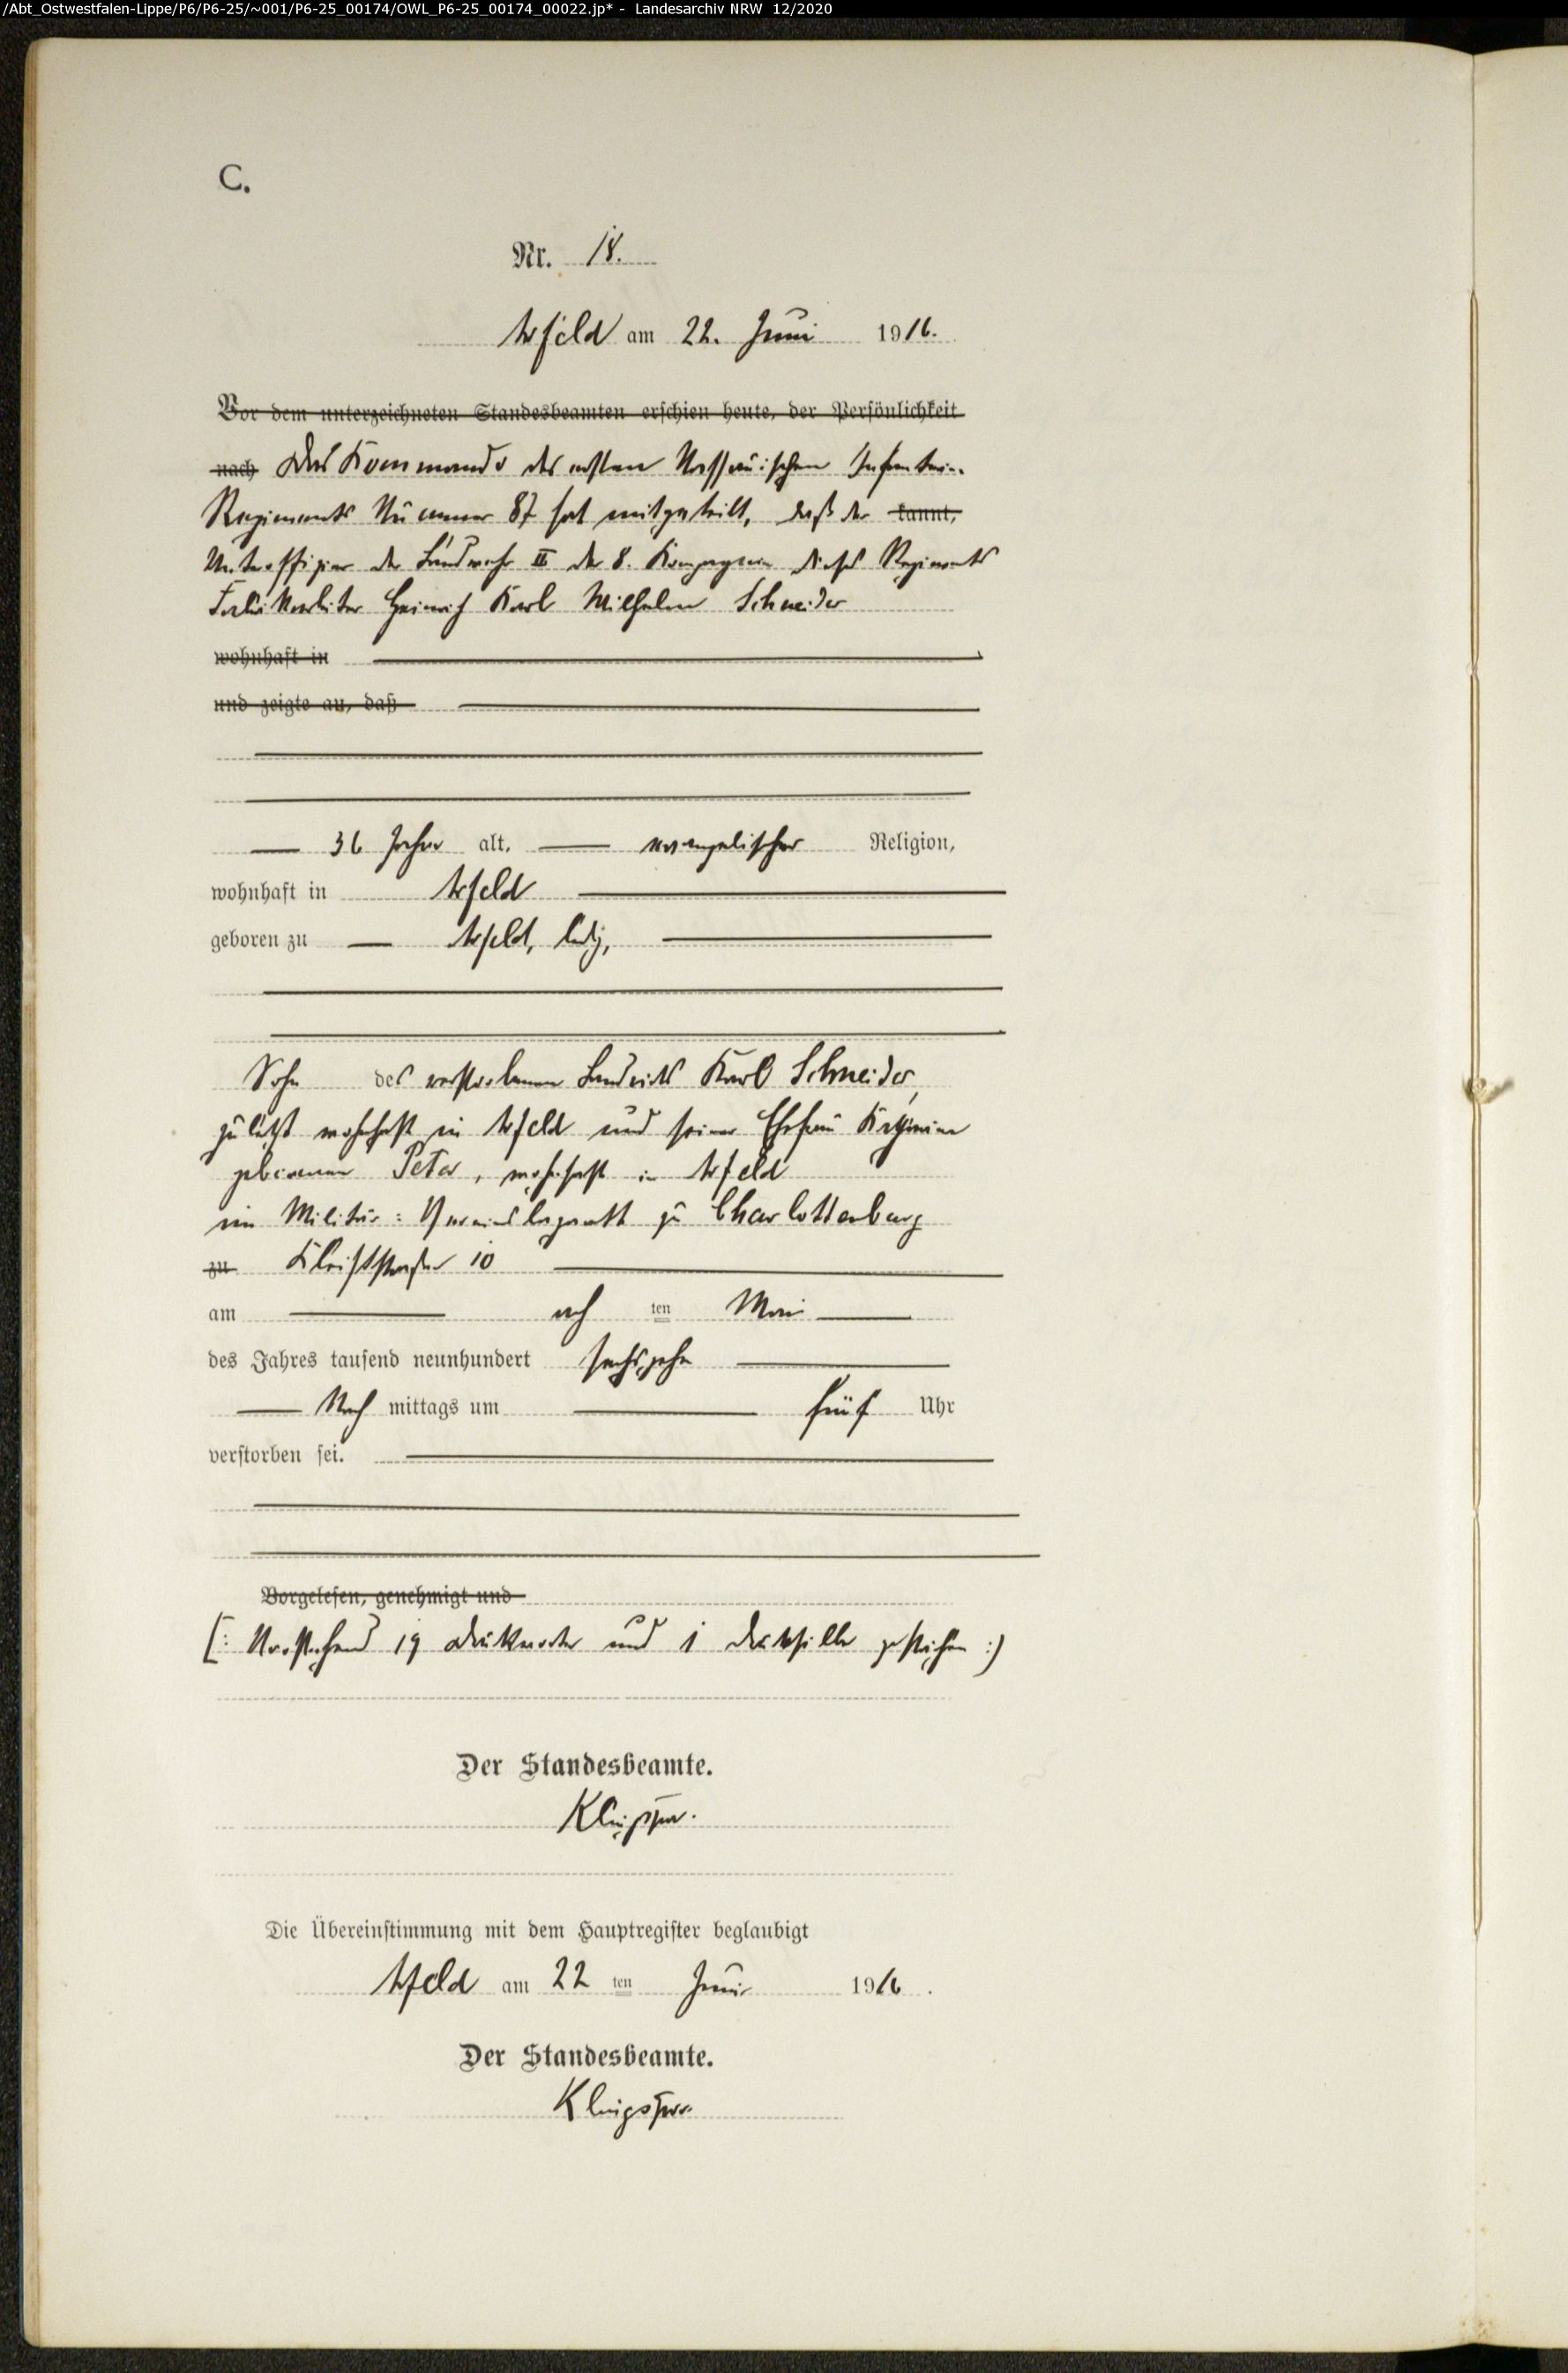 /Abt_Ostwestfalen-Lippe/P6/P6-25/~001/P6-25_00174/OWL_P6-25_00174_00022.jp* - Landesarchiv NRW 12/2020
C.
Nr. 18.
Arfeld am 22. Juni 1916.
Vor dem unterzeichneten Standesbeamten erschien heute, der Persönlichkeit
nach Das Kommando des ersten Nassauischen Infanterie-
Regiments Nummer 87 hat mitgeteilt, daß der kannt,
Unteroffizier der Landwehr II der 8. Kompagnie dieses Regiments
Fabrikarbeiter Heinrich Karl Wilhelm Schneider
wohnhaft in
und zeigte an, daß
36 Jahre alt, evangelischer Religion,
wohnhaft in Arfeld
geboren zu Arfeld, ledig,
Sohn des verstorbenen Landwirts Karl Schneider,
zuletzt wohnhaft in Arfeld und seiner Ehefrau
geborenen Peter, wohnhaft in Arfeld
im Militär-Vereinslazarett zu Charlottenburg
zu Kleiststraße 10
am ach ten Mai
des Jahres tausend neunhundert sechszehn
Nach mittags um fünf Uhr
verstorben sei.
Vorgelesen, genehmigt und
(: Vorstehend 19 Druckworte und 1 Drucksilbe gestrichen :)
Der Standesbeamte.
Die Übereinstimmung mit dem Hauptregister beglaubigt
Arfeld am 22 ten Juni 1916.
Der Standesbeamte.